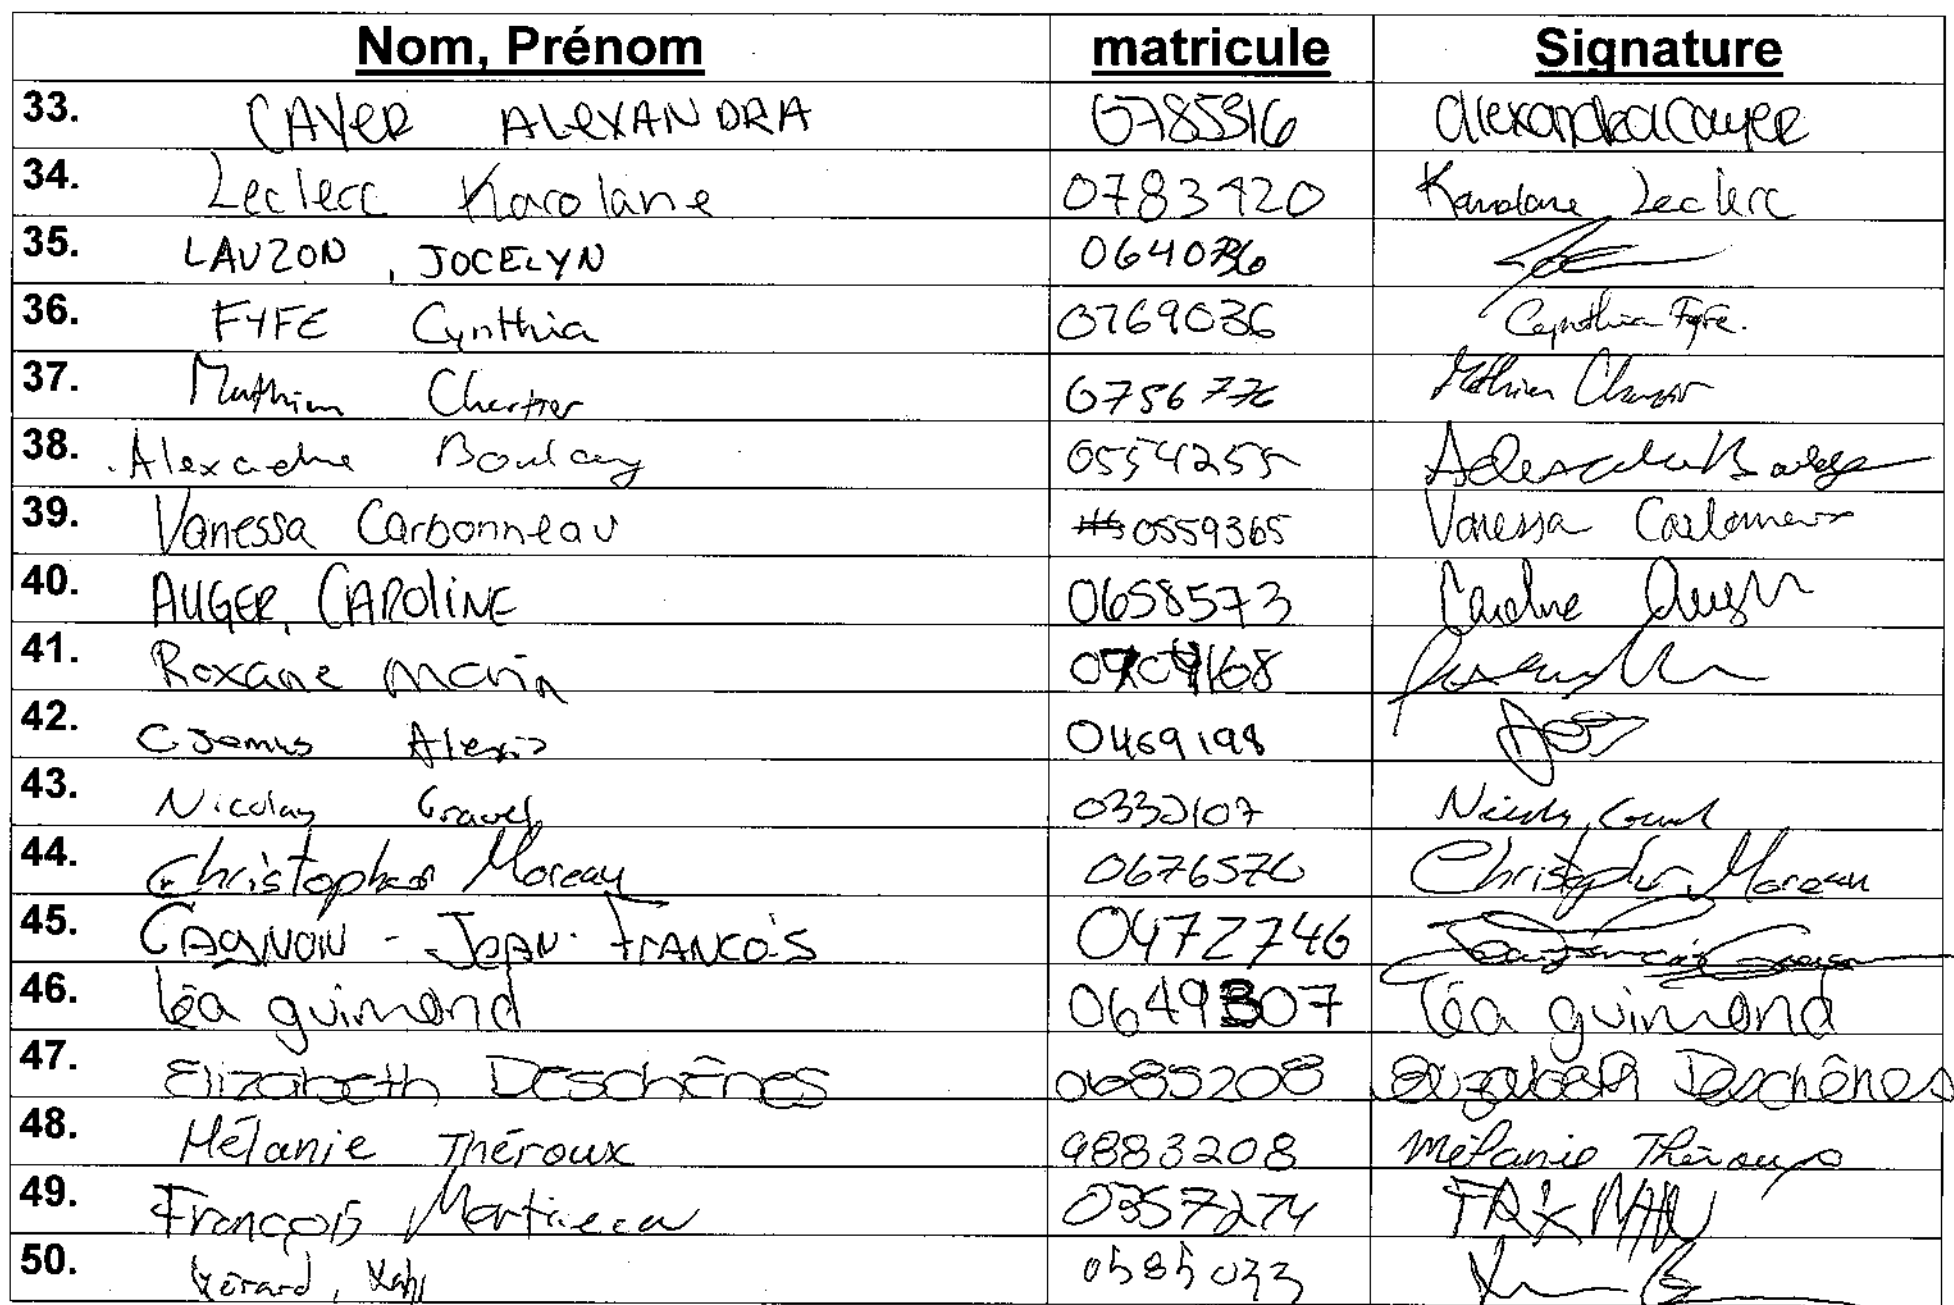 Nom, Prénom matricule Signature
33. CAYER ALEXANDRA 0785316 Alexandra Cayer
34. Leclerc Karolane 0783420 Karolane Leclerc
35. LAUZON, JOCELYN 0640736
36. FYFE Cynthia 0769036 Cynthia Fyfe.
37. Mathieu Chartier 0756776 Mathieu
38. Alexandre Boulay 0554255 Alexandre Boulay
39. Vanessa Carbonneau 0559365 Vanessa Carbonneau
40. AUGER, CAROLINE 0658573 Caroline Auger
41. Roxane Marin
42. Alexis 0469198
43. Nicolas Gravel 0332107 Nicolas Gravel
44. Christopher Moreau 0676576 Christopher Moreau
45. GAGNON - JEAN-FRANCOIS 0472746
46. Léa guimond 0649307 Léa guimond
47. Elizabeth Deschênes 0685208 Elizabeth Deschênes
48. Mélanie Théroux 9883208 Mélanie Théroux
49. François Martineau 0357274
50. Gérard, 0585033